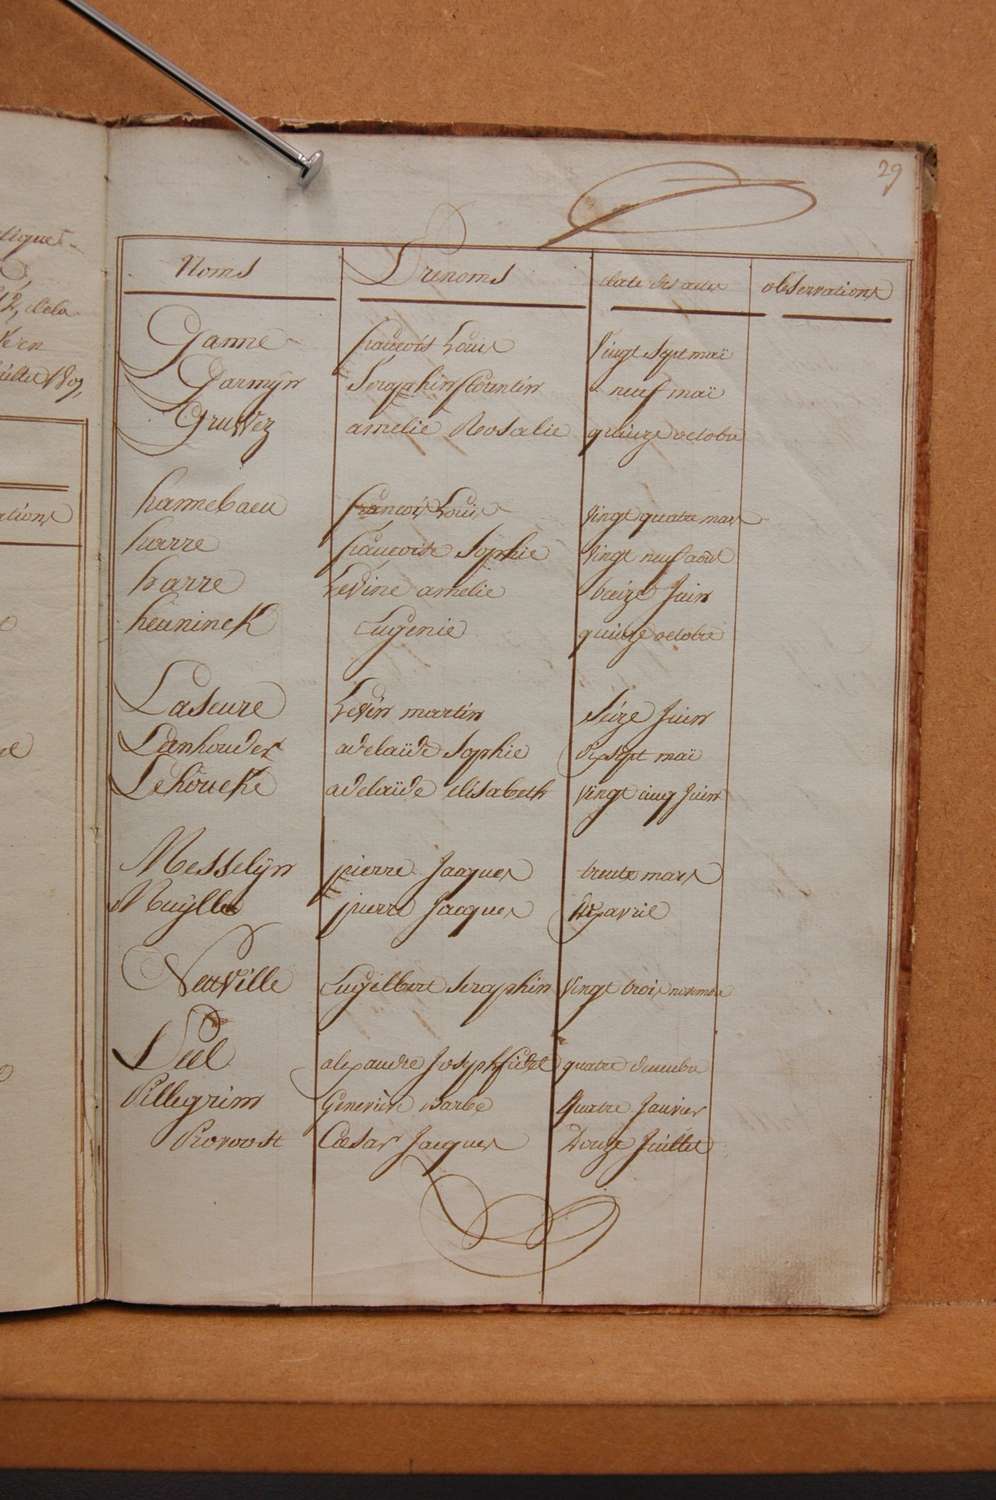 29
tique
12, dela
illet 1807,
ations
Noms Prenoms date des actes observations
Ganne francois Louis Vingt Sept maï
Garmÿn Seraphin florentin neuf maï
Gruwez amelie Rosalie quinze octobre
hannebaeu francois Louis Vingt quatre mars
harre francoise Sophie Vingt neuf août
harre Levine amelie treize Juin
heuninck Eugenie quinze octobre
Laseure Levin martin Seize Juin
Lanhouder adelaïde Sophie dixsept maï
Lehoucke adelaïde elisabeth Vingt cinq Juin
Messelÿn pierre Jacques trente mars
Muÿlle pierre Jacques dix avril
Neuville Engelbert Seraphin Vingt trois novembre
Peel alexandre Joseph fidel quatre decembre
Pellegrim Genevieve Barbe Quatre Janvier
Provoost Cæsar Jacques Douze Juillet